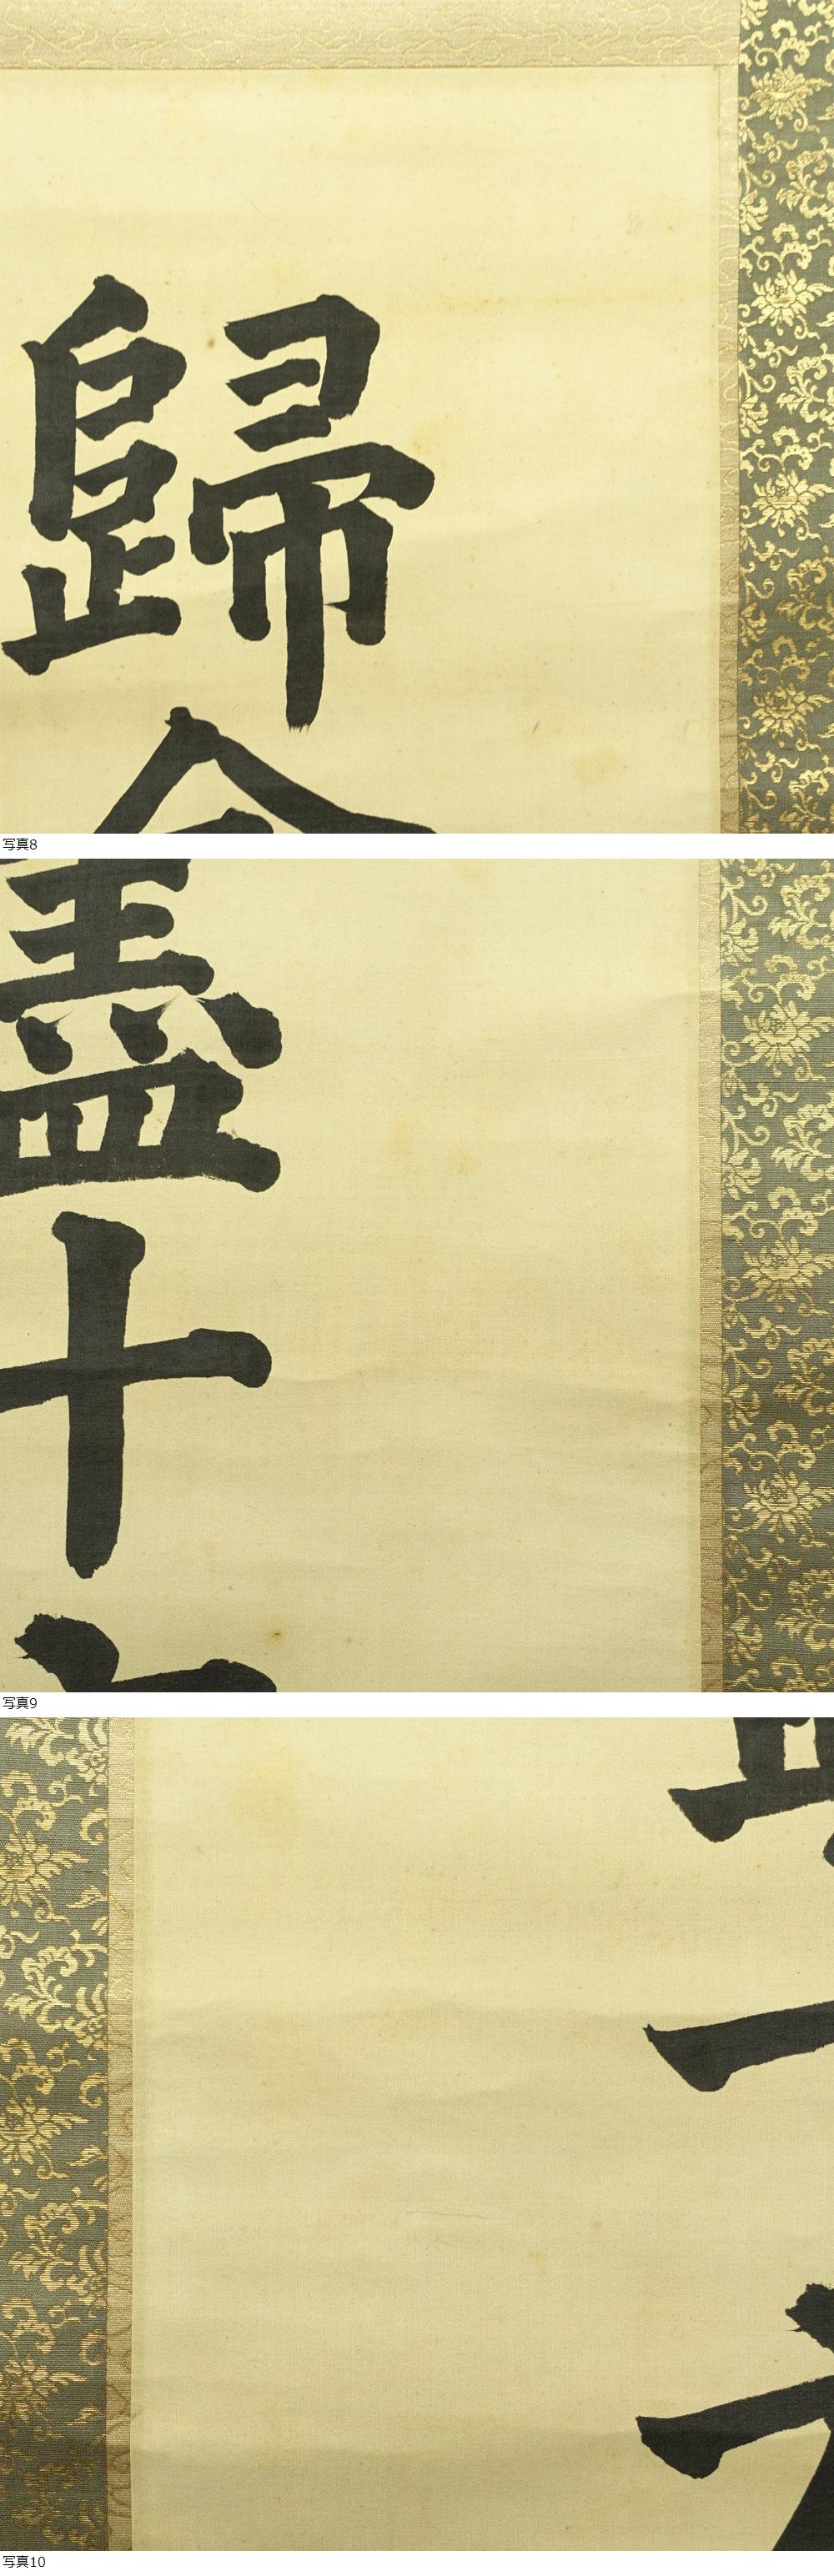 歸
写真8
盡
十
写真9
写真10